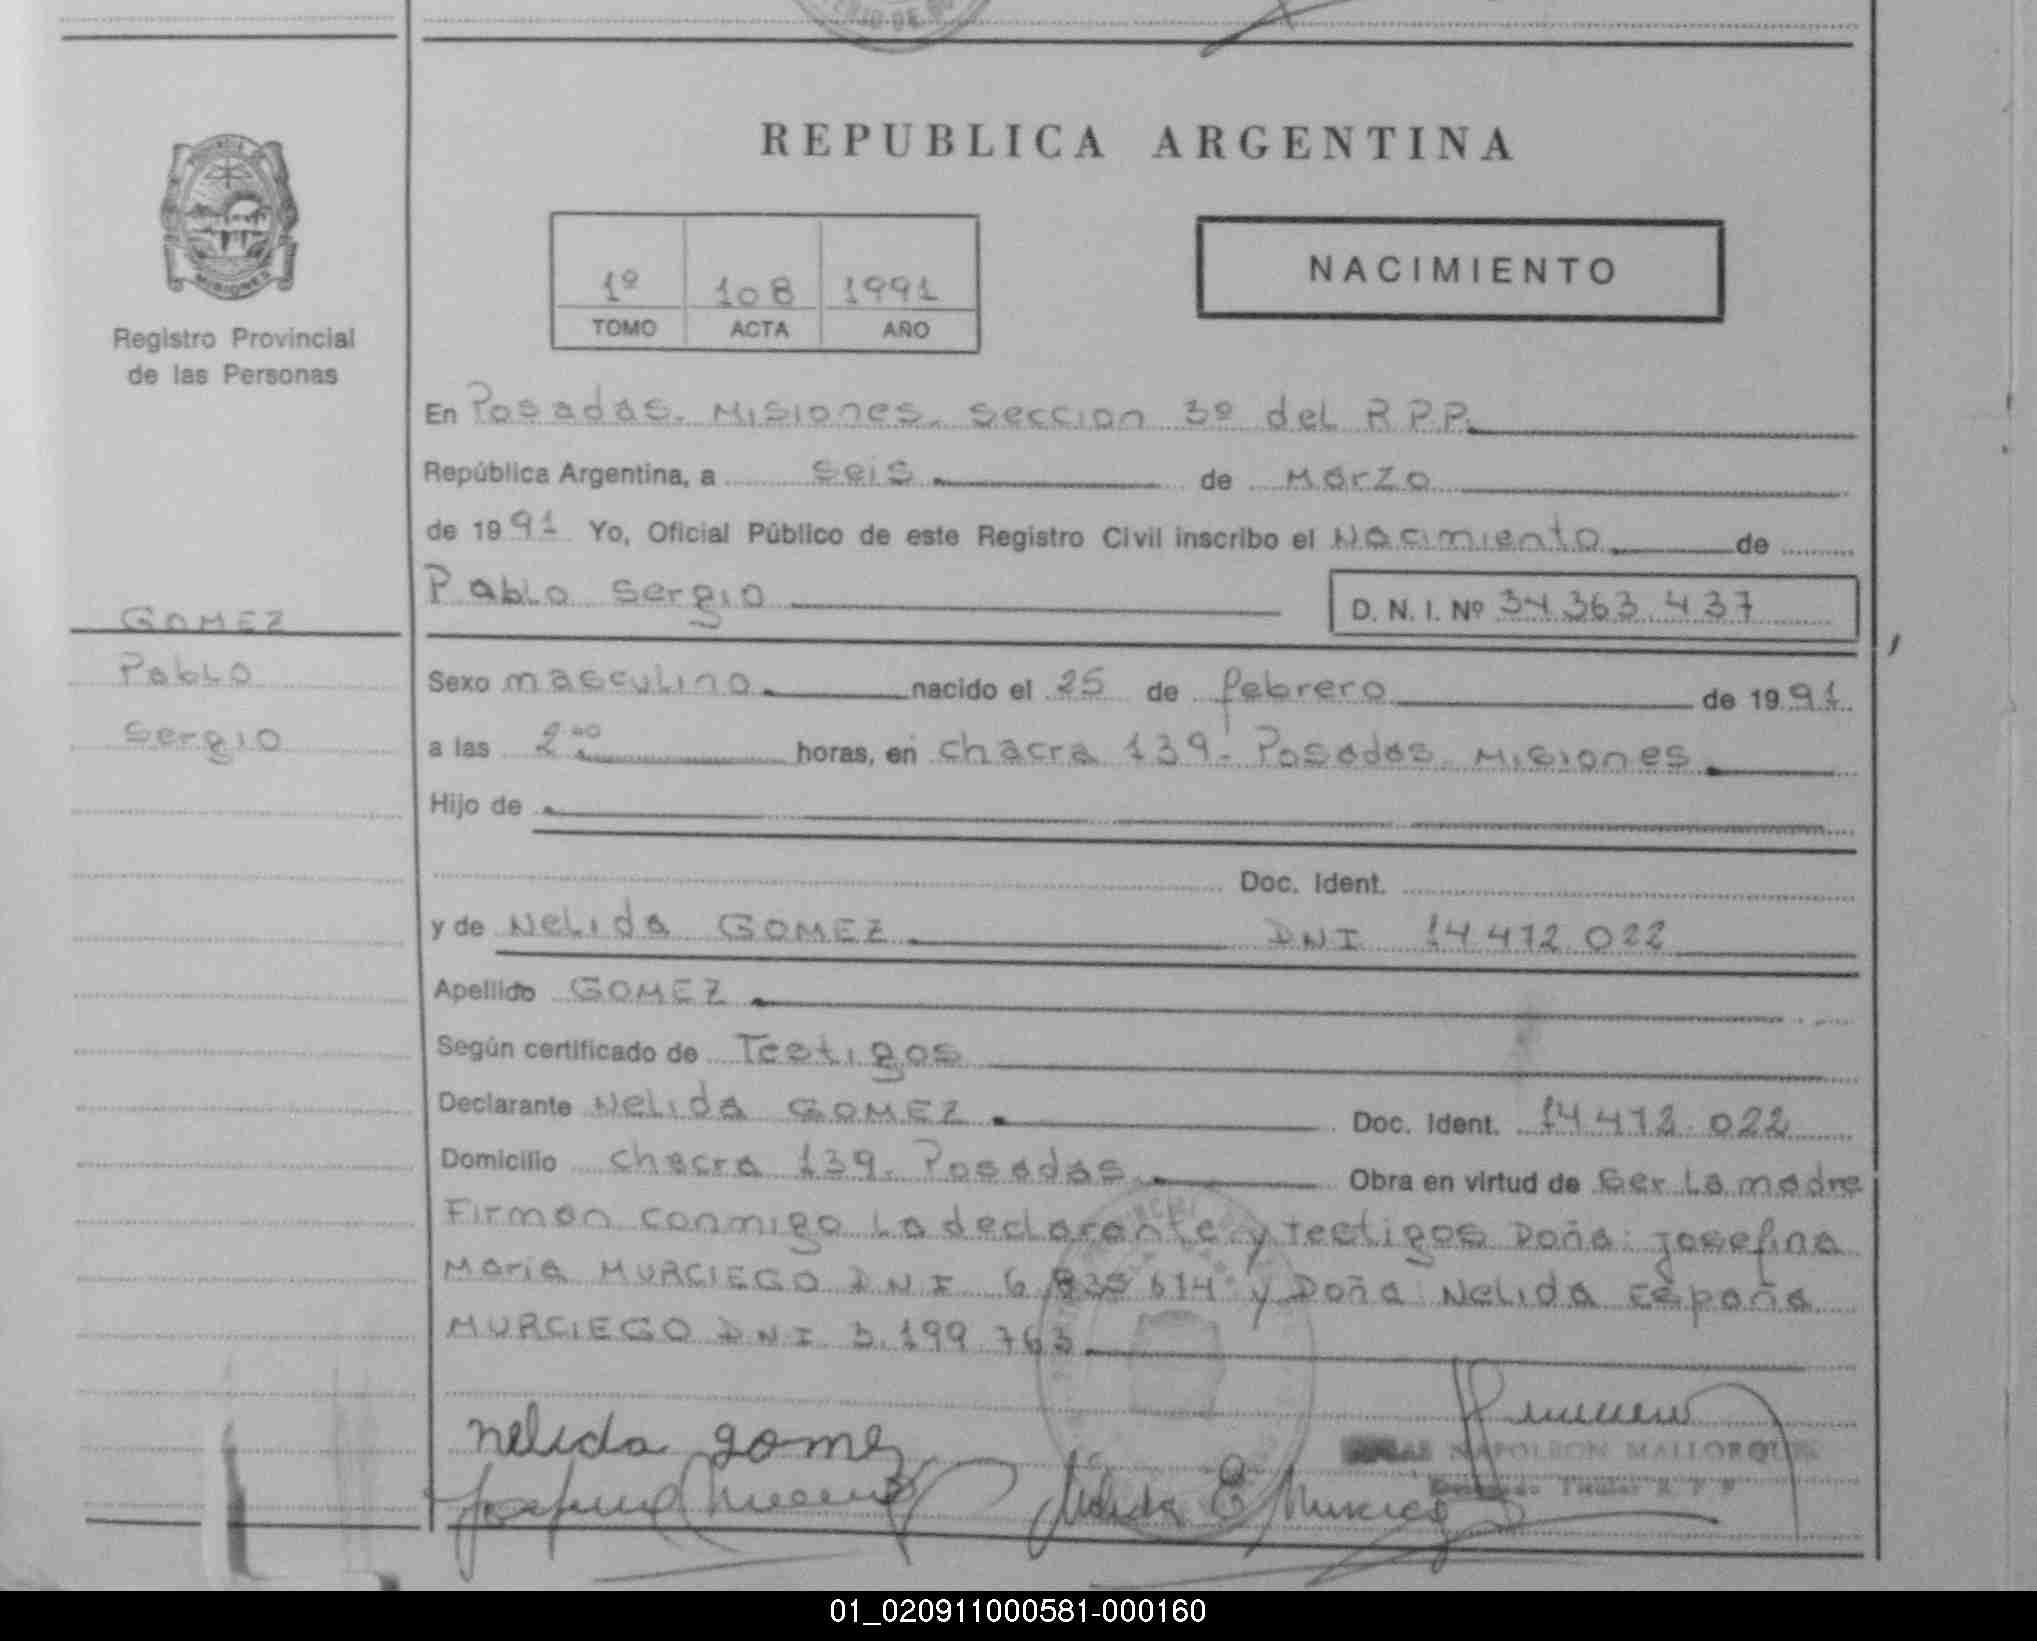 REPUBLICA ARGENTINA
MISIONES
Registro Provincial
de las Personas
1º 108 1991
TOMO ACTA AÑO
NACIMIENTO
En Posadas. Misiones. Seccion 3º del R.P.P.
República Argentina, a seis de Marzo
de 1991 Yo, Oficial Público de este Registro Civil inscribo el Nacimiento de
Pablo Sergio D. N. I. Nº 34.363.437
GOMEZ
Pablo
Sergio
Sexo masculino nacido el 25 de febrero de 1991
a las 2.00 horas, en chacra 139. Posadas. Misiones
Hijo de
Doc. Ident.
y de Nelida GOMEZ DNI 14.472.022
Apellido GOMEZ
Según certificado de Testigos
Declarante Nelida GOMEZ Doc. Ident. 14.472.022
Domicilio chacra 139. Posadas Obra en virtud de ser La madre
Firman conmigo La declarante y testigos Doña: Josefina
Maria MURCIEGO D.N.I. y Doña: Nelida España
MURCIEGO D.N.I. 3.199.763
nelida gomez
Nelida E Murciego
NAPOLEON MALLORQUIN
Titular R P P
01_020911000581-000160